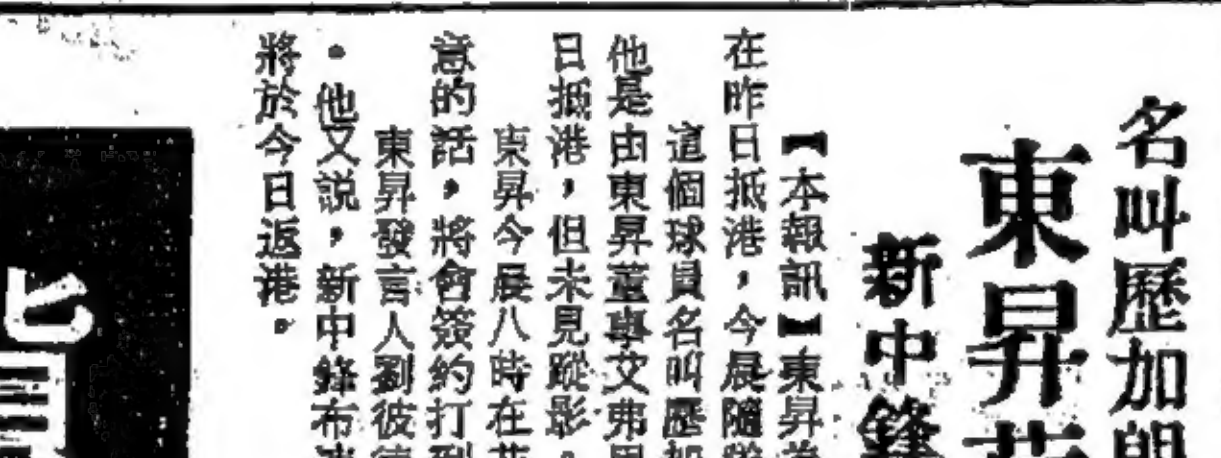 名叫歷加
東昇
新中鋒
【本報訊】東昇
在昨日抵港，今晨隨
這個球員名叫歷加
他是由東昇董事艾弗
日抵港，但未見蹤影。
東昇今晨八時在
意的話，將會簽約打到
東昇發言人劉彼德
。他又說，新中鋒布
將於今日返港。